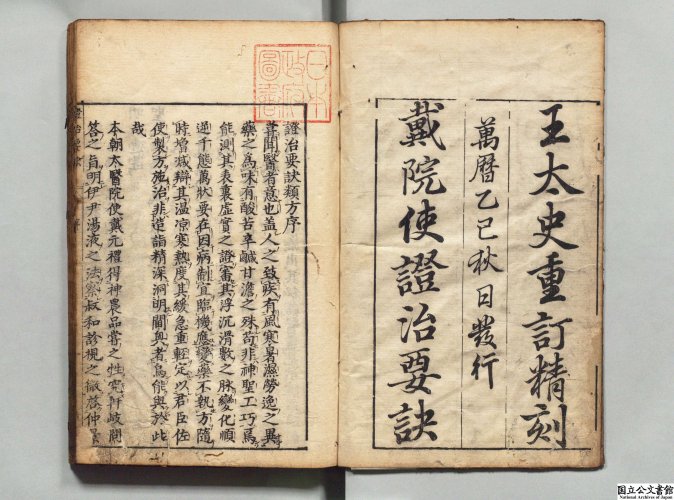 王太史重訂精刻
萬曆乙巳秋日發行
戴院使證治要訣
日本
政府
圖書
證治要訣類方序
甞聞醫者意也盖人之致疾有風寒暑濕勞逸之異
藥之為味有酸苦辛鹹甘澹之殊苟非神聖工巧焉
能測其表裏虛實之證審其浮沉滑數之脉變化順
逆千態萬狀要在因病制宜臨機應變藥不執方隨
時增減辯其溫凉寒熱度其緩急重輕定以君臣佐
使製方施治非造詣精深洞明閫奥者烏能與於此
哉
本朝太醫院使戴元禮得神農品嘗之性究軒岐問
荅之旨明伊尹湯液之法察叔和診視之徵
國立公文書館
National Archives of Japan